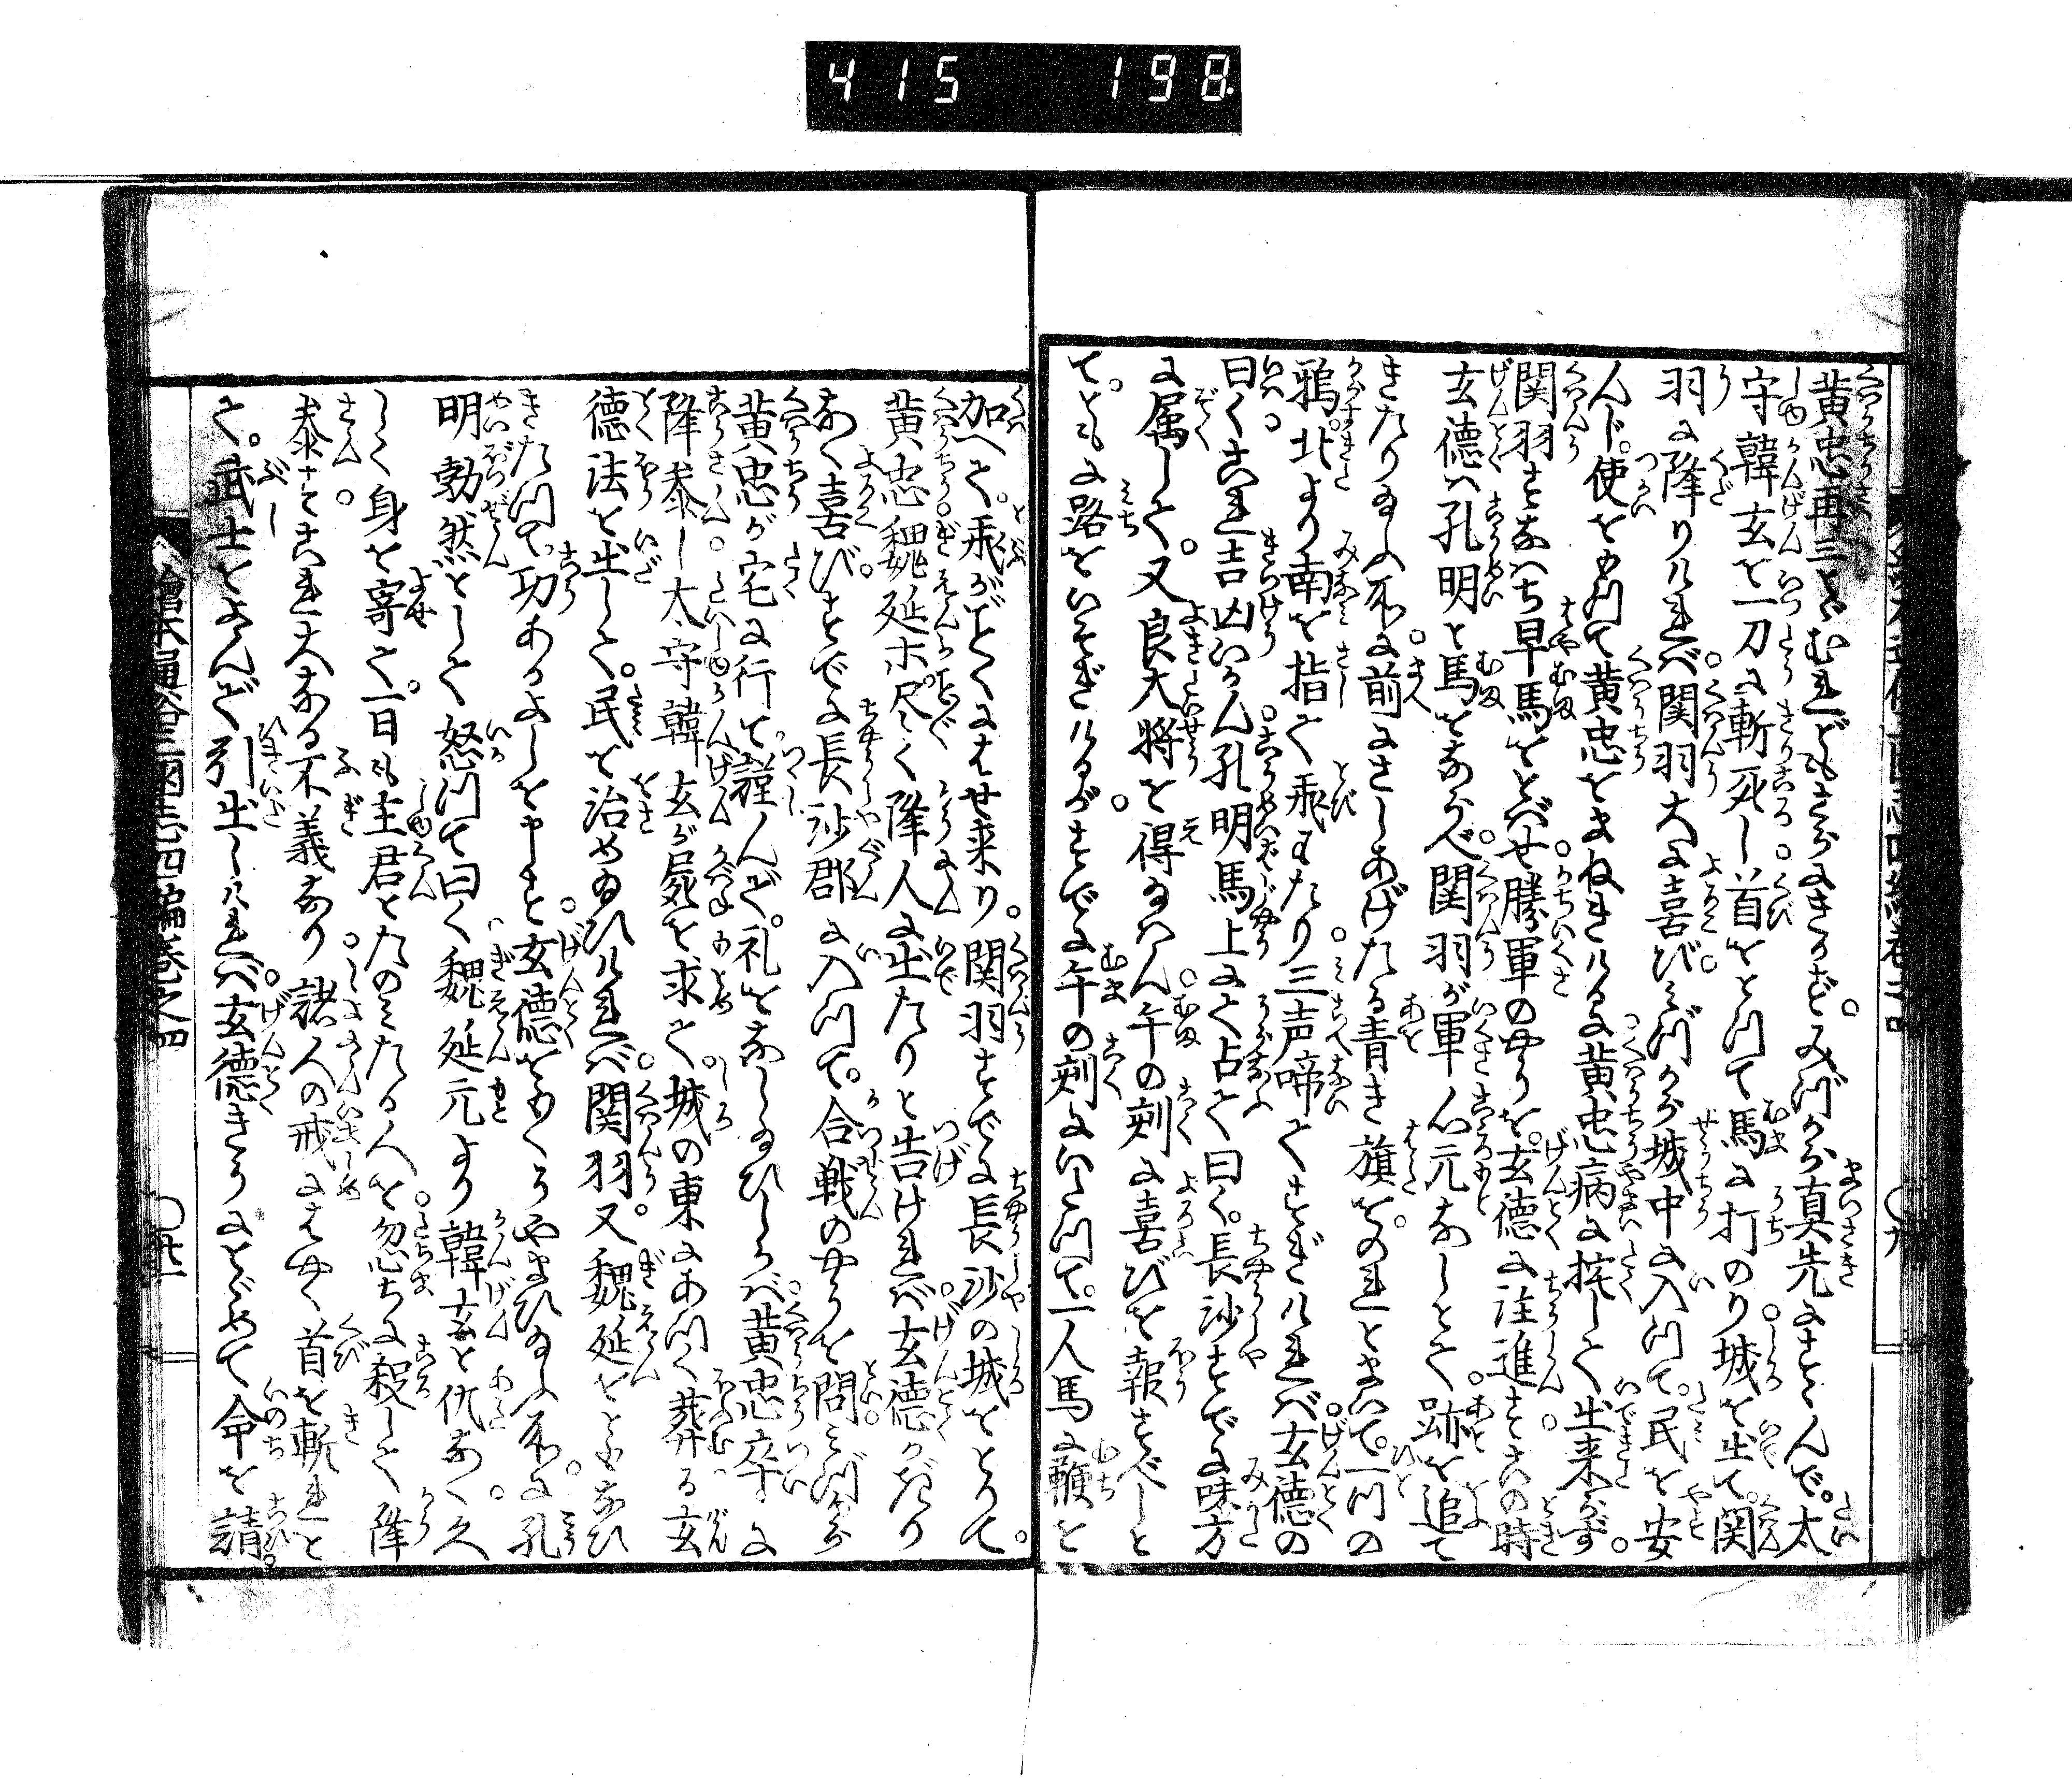 415 198
黄忠再三とゞむれどもさらにきかず。みづから真先にすゝんで。太
守韓玄を一刀に斬死し首をとつて馬に打のり城を出て。関
羽に降りければ関羽大に喜びみづから城中に入つて。民を安
んじ。使を以つて黄忠をまねきけるに黄忠病に託して出来らず。
関羽すなはち早馬をとばせ勝軍のやうを。玄徳に注進すこの時
玄徳ハ孔明と馬をならべ関羽が軍心元なしとて跡を追て
きたり給ふ所に前にさしあげたる青き旗をのれとまいて。一つの
鴉。北より南を指て飛わたり三声啼てすぎければ玄徳の
曰くこれ吉凶いかん孔明馬上にて占て曰く。長沙すでに味方
に属して。又良大将を得給はん午の刻に喜びを報ずべしと
て。ともに路をいそぎけるがすでに午の刻にいたつて。一人馬に鞭を
加へて。飛がごとくにはせ来り関羽すでに長沙の城をとりて。
黄忠魏延ホ尽く降人に出たりと告ければ玄徳かぎり
なく喜び。すでに長沙郡に入つて。合戦のやうを問みづから
黄忠が宅に行て謹んで。礼をなし給ひしかば黄忠卒に
降参し太守韓玄が屍を求て。城の東にあつく葬る玄
徳法を出して。民を治め給ひければ関羽。又魏延をともなひ
きたつて。功あるよしを申すと玄徳をもくうやまひ給ふ所に孔
明勃然として怒つて曰く魏延元より韓玄と仇なく久
しく身を寄て。一日も主君とたのみたる人を忽ちに殺して降
参すこれ大なる不義なり諸人の戒にはやく首を斬れと
て。武士をよんで引出しければ。玄徳きうにとゞめて命を請
繪本通俗三國志四編巻之四